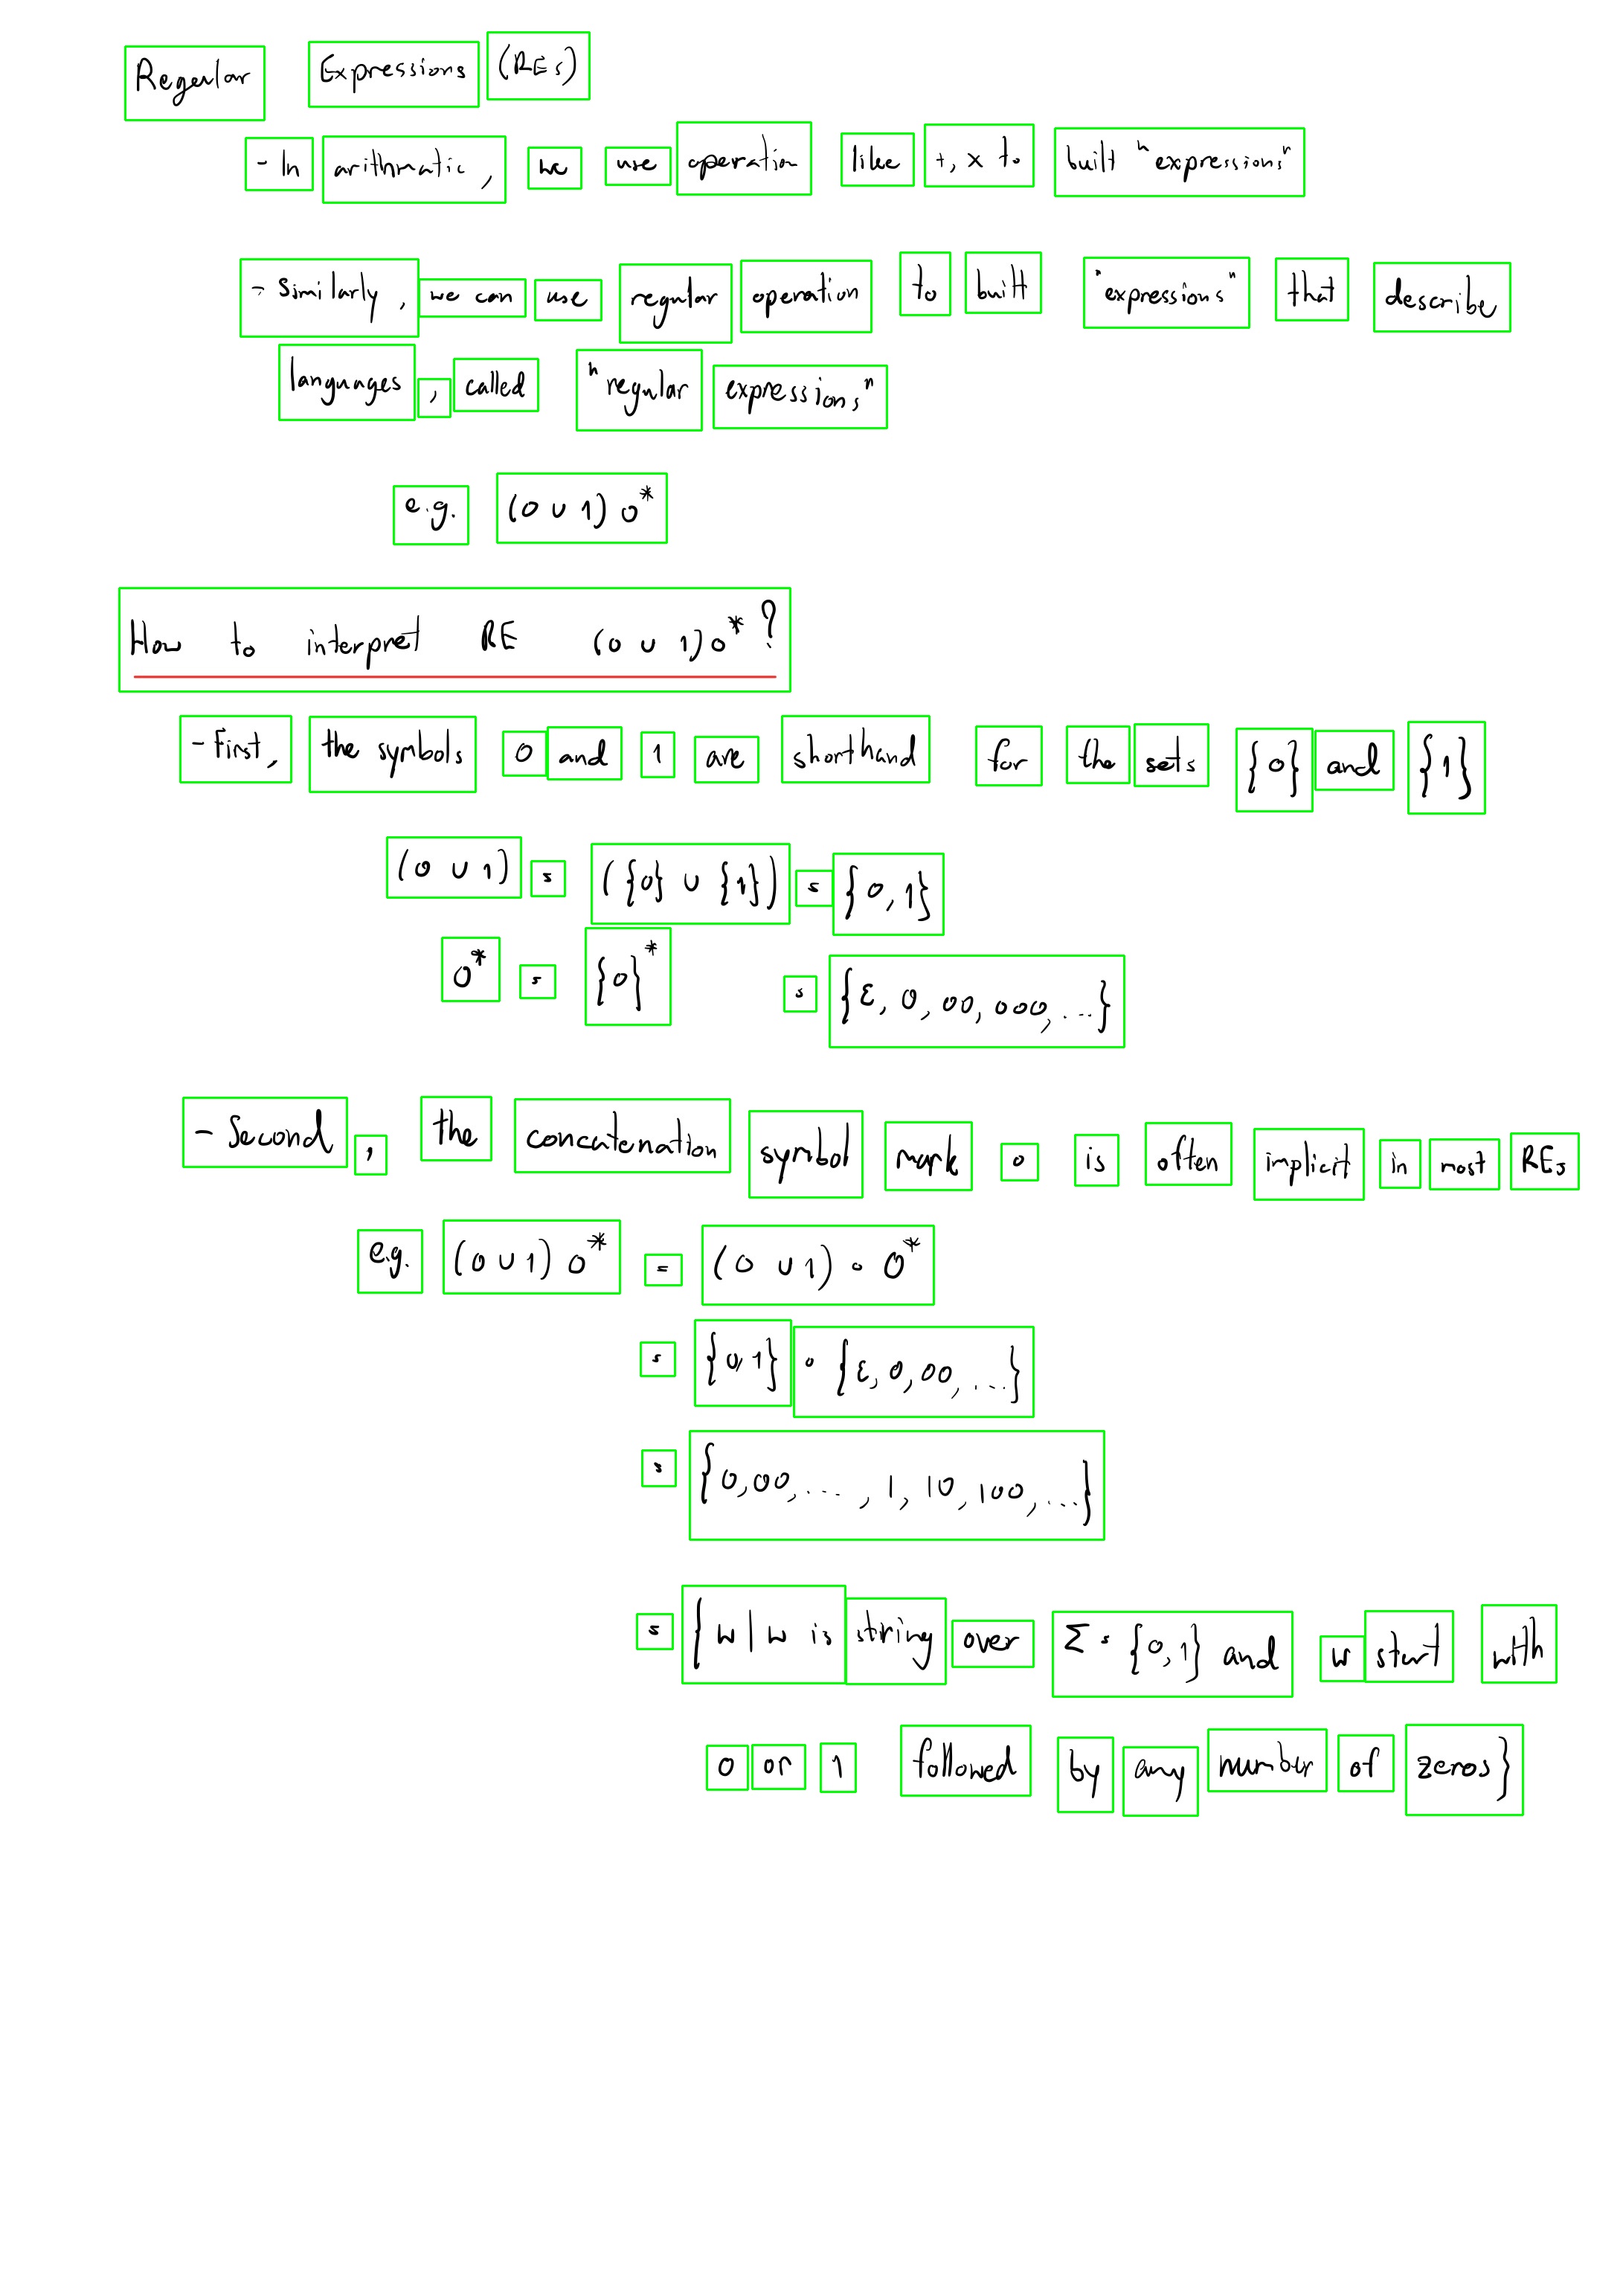 Regular Expressions (REs)
- In arithmatic, we use operation like +, × to built "expressions"
- Similarly, we can use regular operation to built "expressions" that describe
languages, called "regular expressions"
e.g. (0 ∪ 1) 0*
How to interpret RE (0 ∪ 1) 0* ?
- First, the symbols 0 and 1 are shorthand for the sets {0} and {1}
(0 ∪ 1) = ({0} ∪ {1}) = {0, 1}
0* = {0}* = {ε, 0, 00, 000, ...}
- Second, the concatenation symbol mark ∘ is often implicit in most REs
e.g. (0 ∪ 1) 0* = (0 ∪ 1) ∘ 0*
= {0, 1} ∘ {ε, 0, 00, ...}
= {0, 00, ..., 1, 10, 100, ...}
= {w | w is string over Σ = {0, 1} and w start with
0 or 1 followed by any number of zeros}